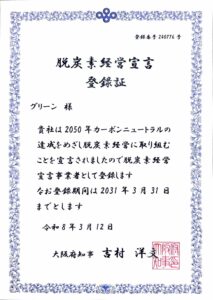 登録番号240776号
脱炭素経営宣言
登録証
グリーン 様
貴社は2050年カーボンニュートラルの
達成をめざし脱炭素経営に取り組む
ことを宣言されましたので脱炭素経営
宣言事業者として登録します
なお登録期間は2031年3月31日
までとします
令和8年3月12日
大阪府知事 吉村 洋文